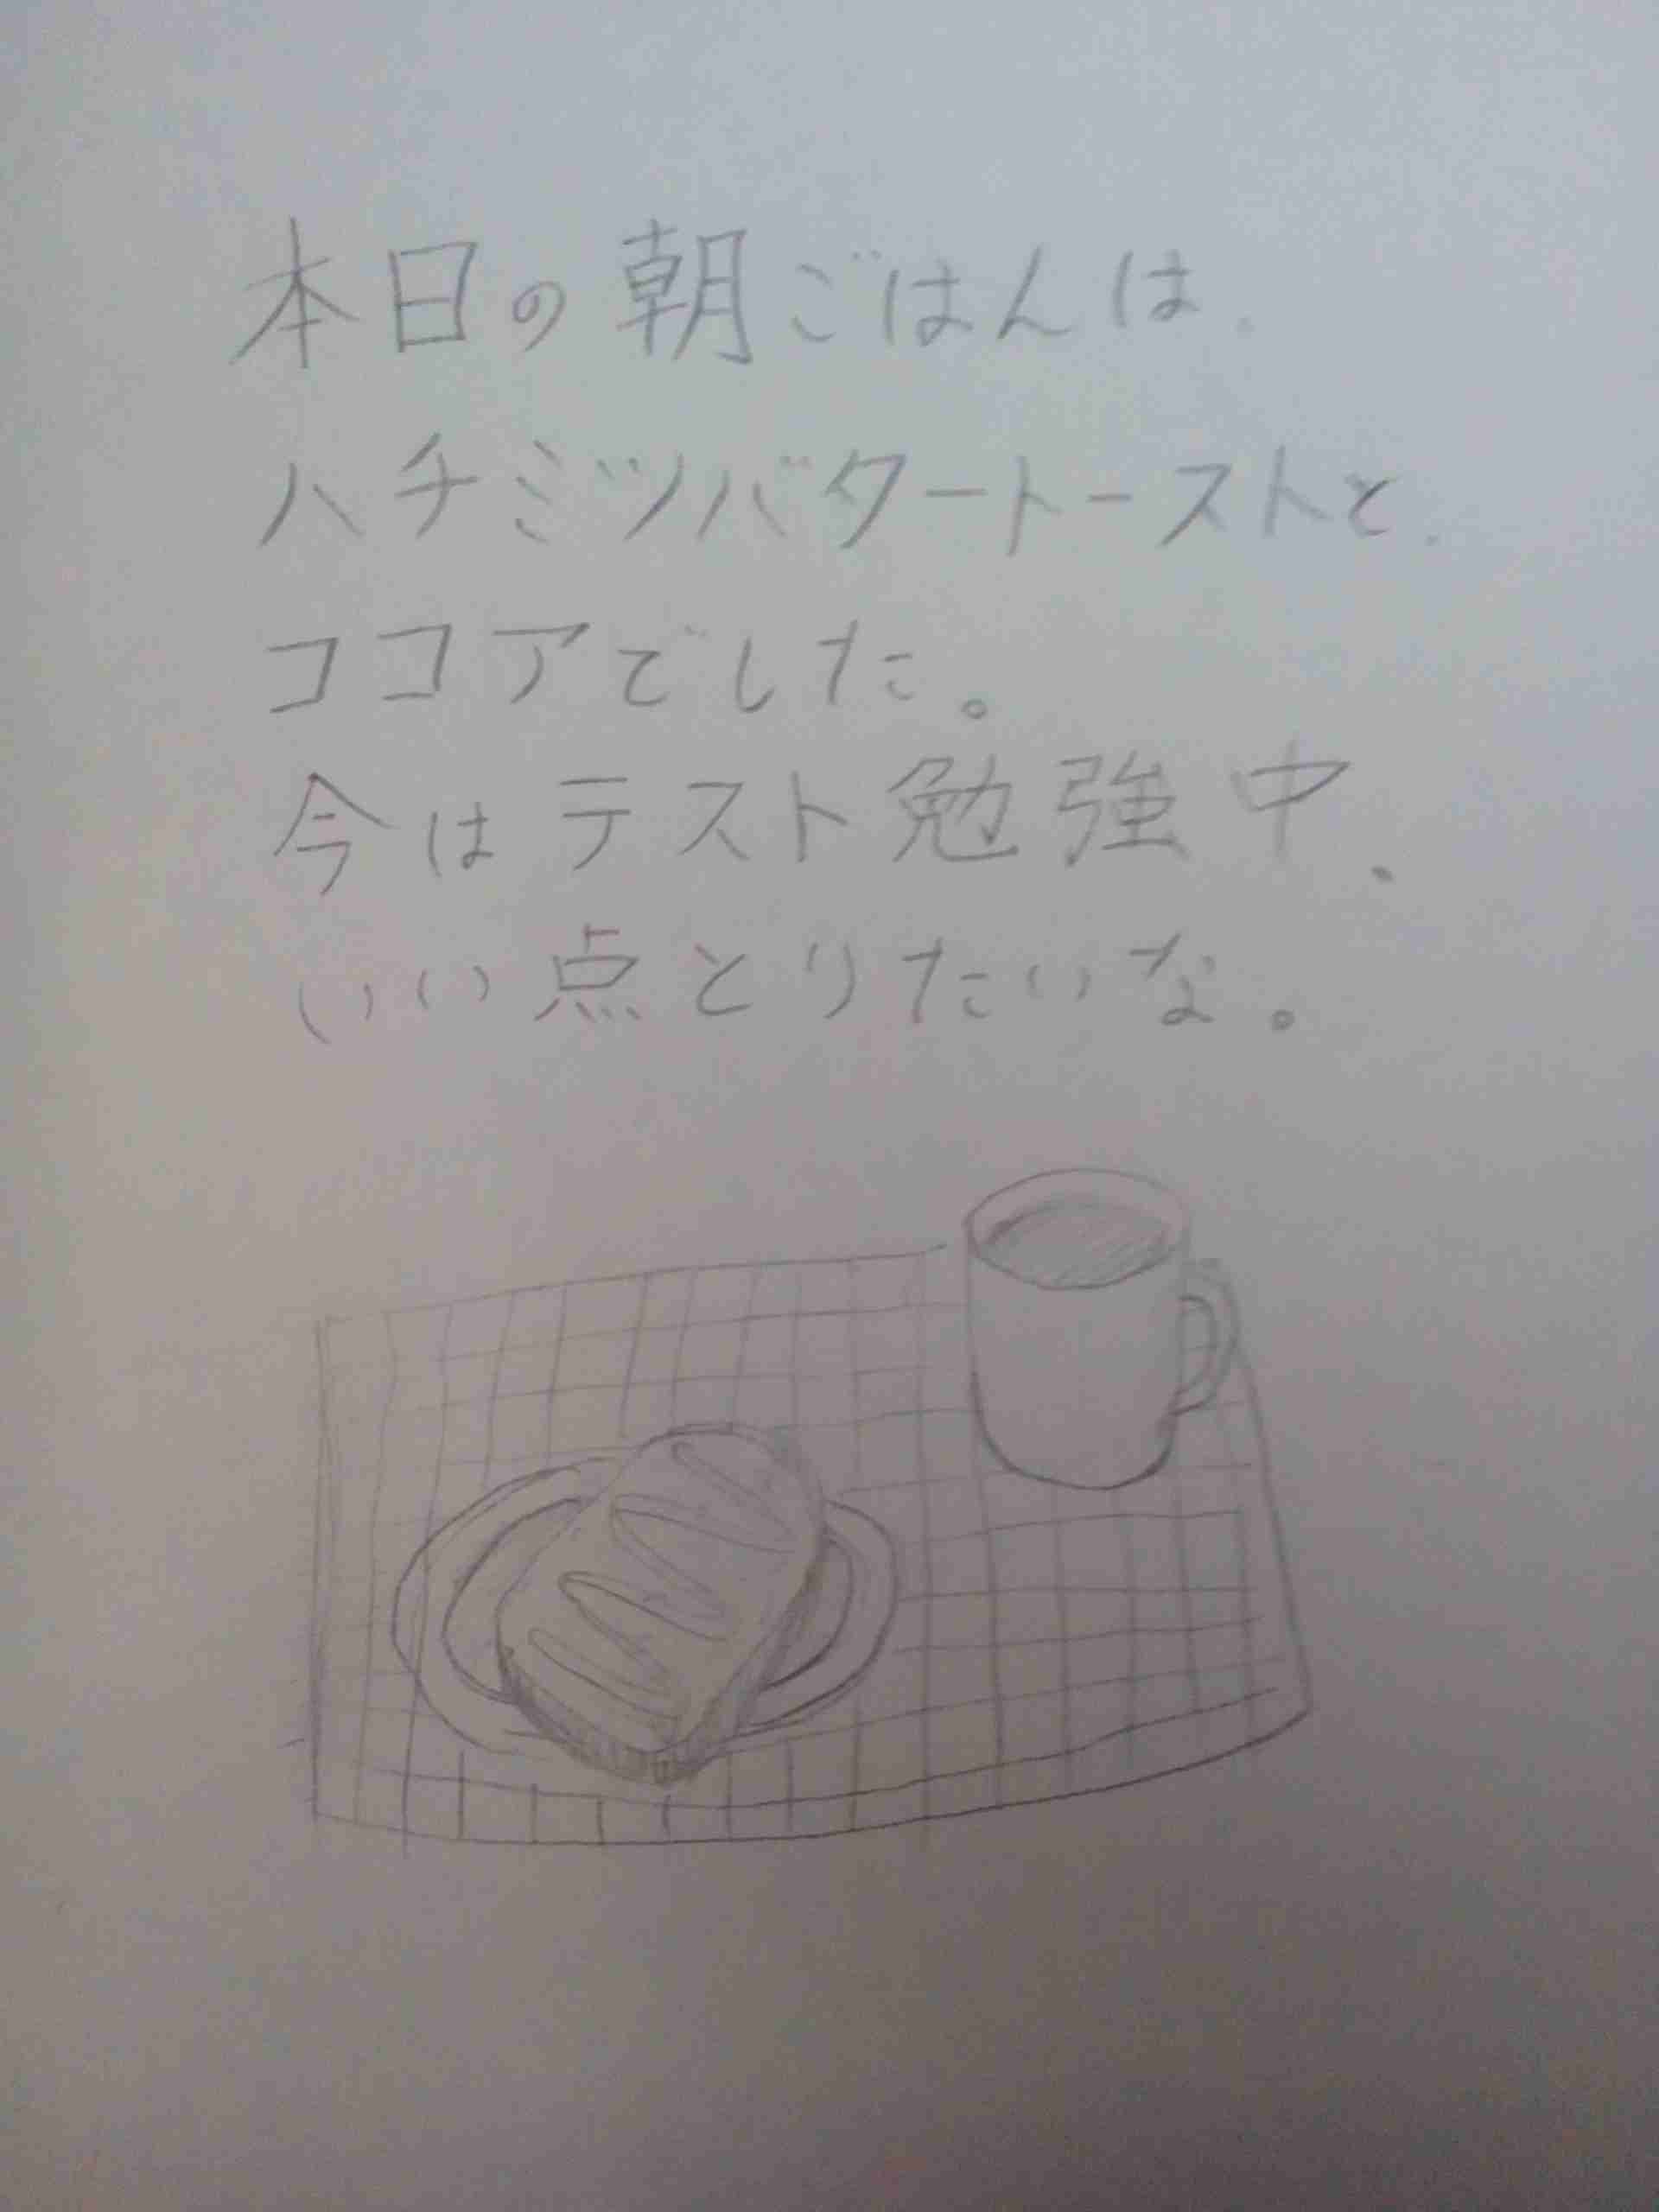 本日の朝ごはんは、
ハチミツバタートーストと、
ココアでした。
今はテスト勉強中、
いい点とりたいな。